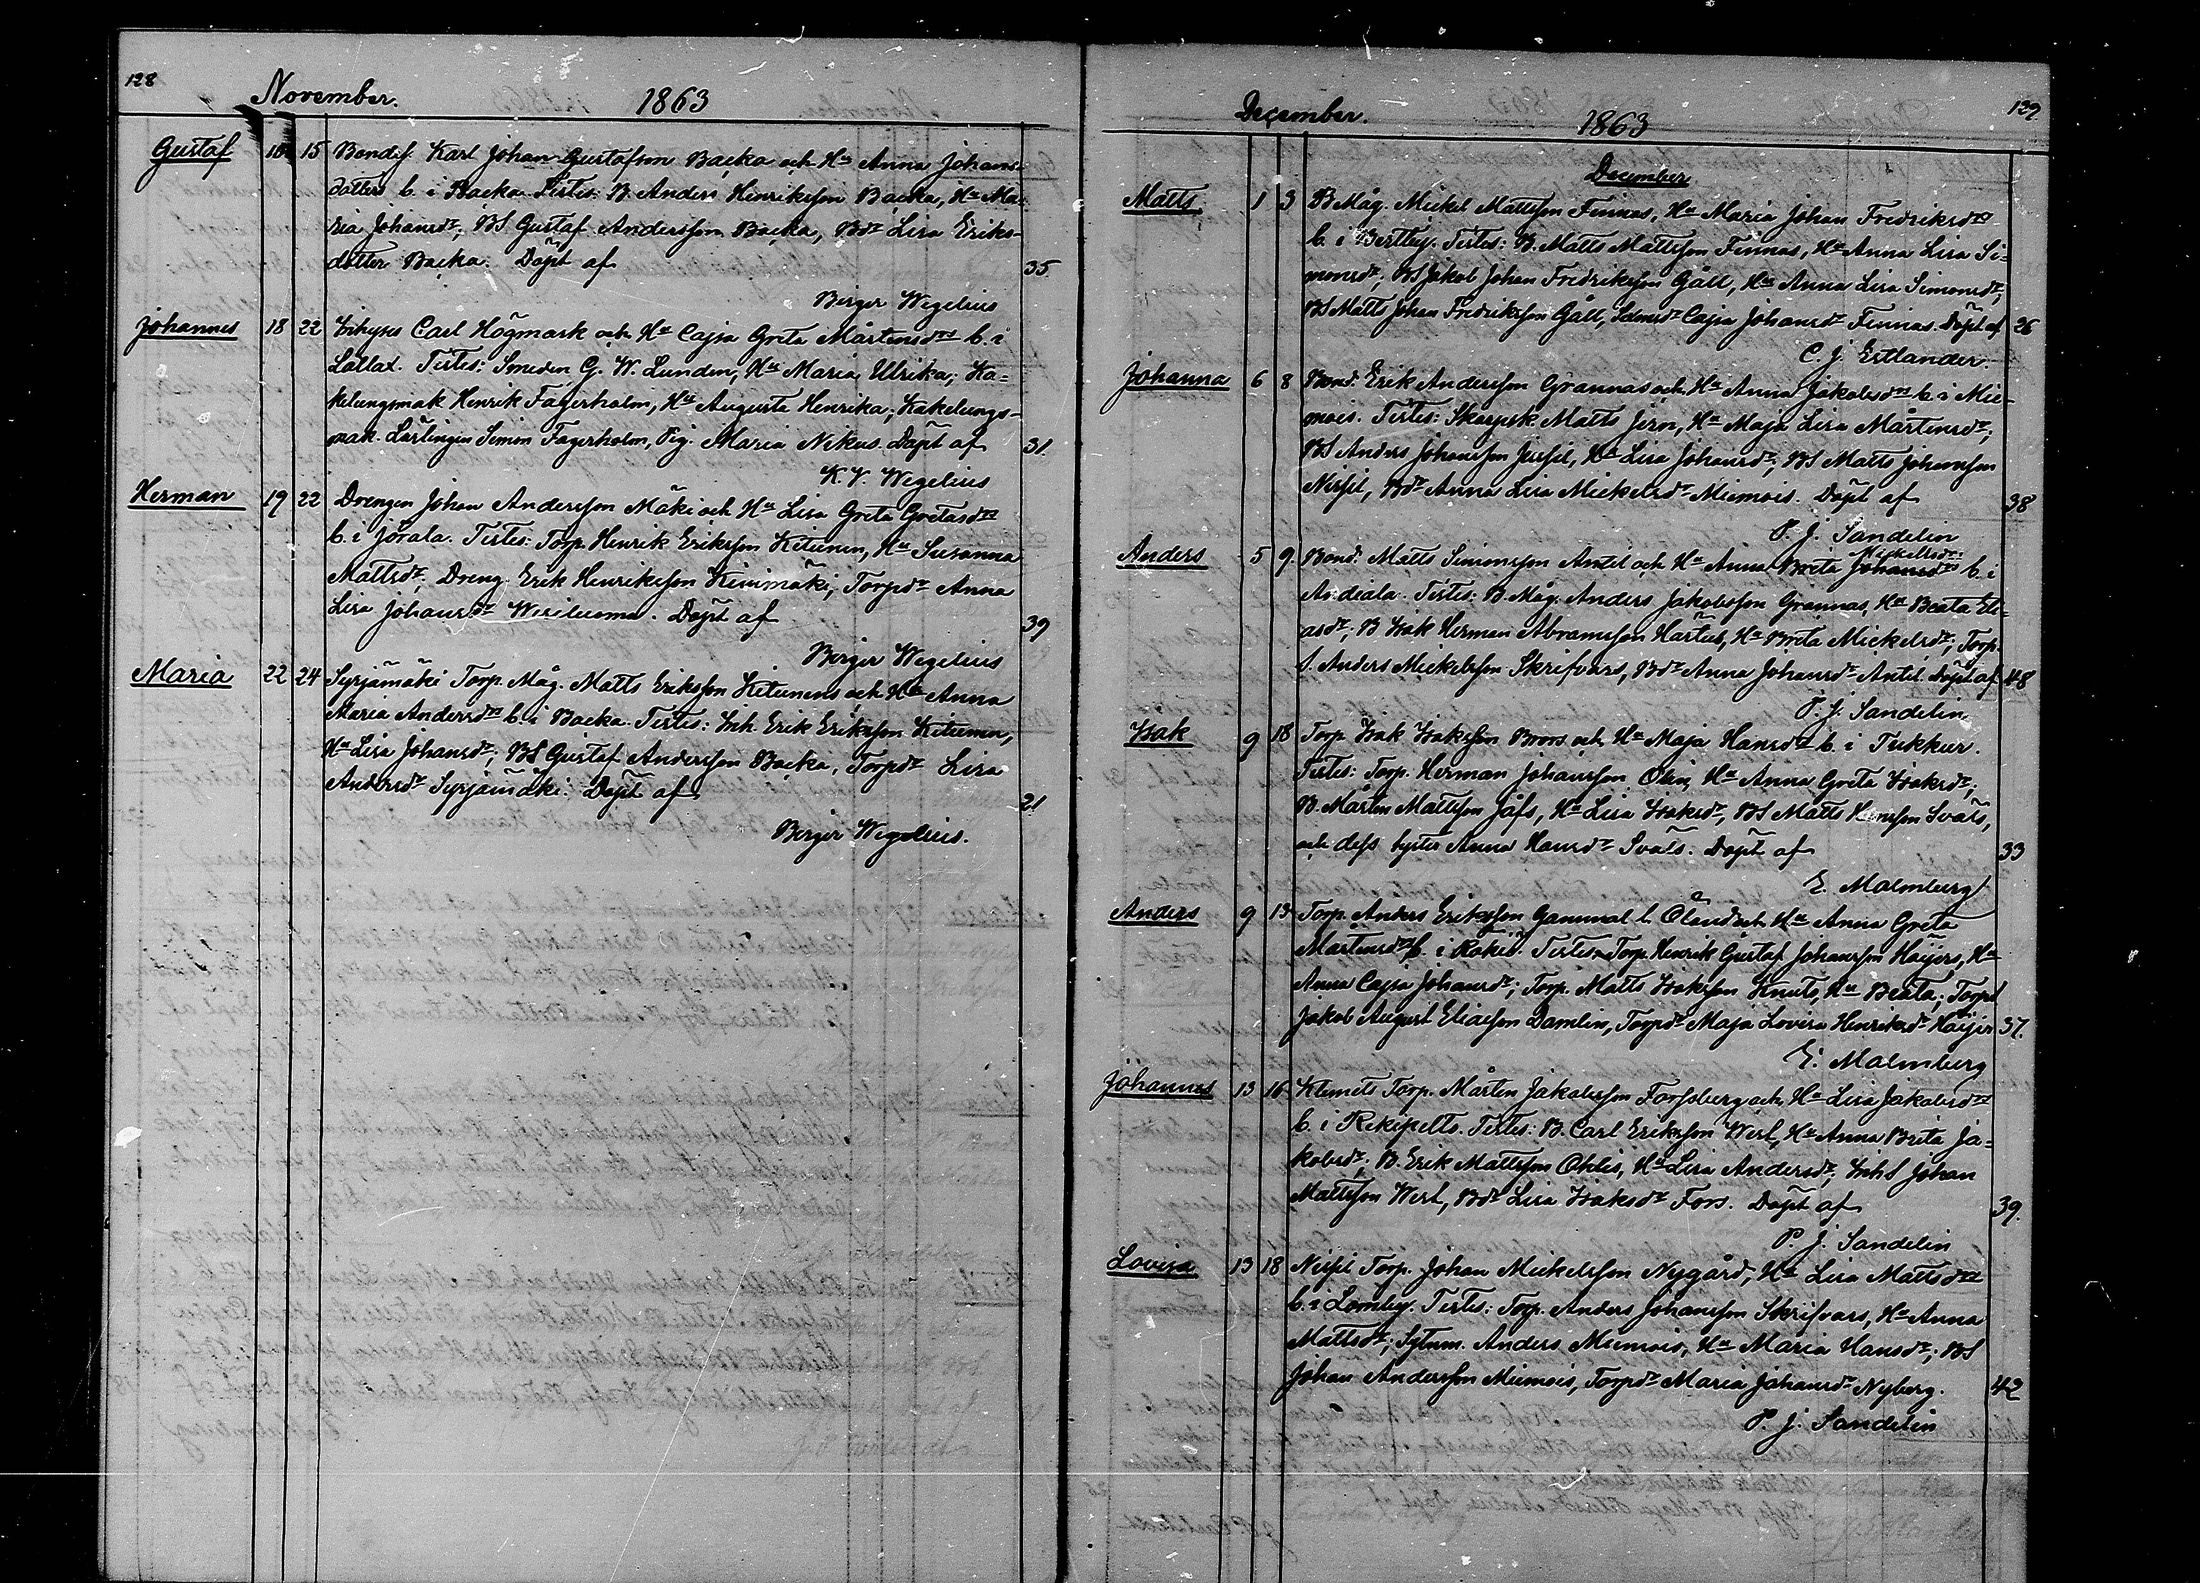 128
November. 1863
Gustaf 10 15 Bondes. Karl Johan Gustafson Backa och Hu Anna Johans-
dotters b. i Backa. Testes: B. Anders Henriksson Backa, Hu Ma-
ria Johansdr, BS Gustaf Andersson Backa, Bdr Lisa Eriks-
dotter Backa. Döpt af 35
Berger Wegelius
Johannes 18 22 Inhyses Carl Högmark och Hu Cajsa Greta Mårtensdrs b. i
Lållax. Testes: Smeden G. W. Lunden, Hu Maria Ulrika; Ka-
kelungsmak Henrik Fagerholm, Hu Augusta Henrika; Kakelungs-
mak. Lärlingen Simon Fagerholm, Pig. Maria Nikus. Döpt af 31.
K. V. Wegelius
Herman 19 22 Drengen Johan Andersson Mäki och Hu Lisa Greta Gretasdrs
b. i Jörala. Testes: Torp. Henrik Eriksson Kitunen, Hu Susanna
Mattsdr, Dreng. Erik Henriksson Kinimäki, Torpdr Anna
Lisa Johansdr Wesiluoma. Döpt af 39
Berger Wegelius
Maria 22 24 Syrjämäki Torp. Måg. Matts Eriksson Kitunens och Hu Anna
Maria Andersdrs b. i Backa. Testes: Inh. Erik Eriksson Kitunen,
Hu Lisa Johansdr; BS Gustaf Andersson Backa, Torpdr Lisa
Andersdr Syrjämäki. Döpt af 21
Berger Wegelius.
129
December. 1863
December
Matts 1 3 B Måg. Mickel Mattsson Finnas, Hu Maria Johan Fredriksdrs
b. i Bertby. Testes: B. Matts Mattsson Finnas, Hu Anna Lisa Si-
monsdr; BS Jakob Johan Fredriksson Gåll, Hu Anna Lisa Simonsdr;
BS Matts Johan Fredriksson Gåll, Cajsa Johansdr Finnas. Döpt af 26
C. J. Estlander.
Johanna 6 8 Bond. Erik Andersson Grannas och Hu Anna Jakobsdrs b. i Mie-
mois. Testes: Matts Jern, Hu Maja Lisa Mårtensdr;
BS Anders Johansson Jussil, Hu Lisa Johansdr; BS Matts Johansson
Nissil, Bdr Anna Lisa Mickelsdr Miemois. Döpt af 38
P. J. Sandelin
Mickelsdrs
Anders 5 9. Bond. Matts Simonsson Antil och Hu Anna Brita Johansdrs b. i
Andiala. Testes: B. Måg. Anders Jakobsson Grannas, Hu Beata Eli-
asdr; B Isak Herman Abramsson Hartus, Hu Brita Mickelsdr; Torp.
s. Anders Mickelsson Skrifvars, Bdr Anna Johansdr Antil. Döpt af 48
P. J. Sandelin
Isak 9 18 Torp. Isak Isaksson Bross och Hu Maja Hansdrs b. i Tukkur.
Testes: Torp. Herman Johansson Ohin, Hu Anna Greta Isaksdr;
B. Mårten Mattsson Jåfs, Hu Lisa Isaksdr, BS Matts Hansson Svars,
och dess syster Anna Hansdr Svars. Döpt af 33
E. Malmberg
Anders 9 13 Torp. Anders Eriksson Gammal l. Öland och Hu Anna Greta
Mårtensdrs b. i Rökiö. Testes: Torp. Henrik Gustaf Johansson Häijers, Hu
Anna Cajsa Johansdr; Torp. Matts Isaksson Knuts, Hu Beata; Torps
Jakob August Eliasson Damlin, Torpdr Maja Lovisa Henriksdr Häijer 37.
E. Malmberg
Johannes 13 16 Klemets Torp. Mårten Jakobsson Forssberg och Hu Lisa Jakobsdrs
b. i Rekipelto. Testes: B. Carl Eriksson Werl, Hu Anna Brita Ja-
kobsdr; B. Erik Mattsson Ohlis, Hu Lisa Andersdr; InhS Johan
Mattsson Werl, Bdr Lisa Isaksdr Fors. Döpt af 39.
P. J. Sandelin
Lovisa 13 18 Nissil Torp. Johan Mickelsson Nygård, Hu Lisa Mattsdrs
b. i Lomby. Testes: Torp. Anders Johansson Skrifvars, Hu Anna
Mattsdr; Sytnm. Anders Miemois, Hu Maria Hansdr; BS
Johan Andersson Miemois, Torpdr Maria Johansdr Nyberg. 42
P. J. Sandelin